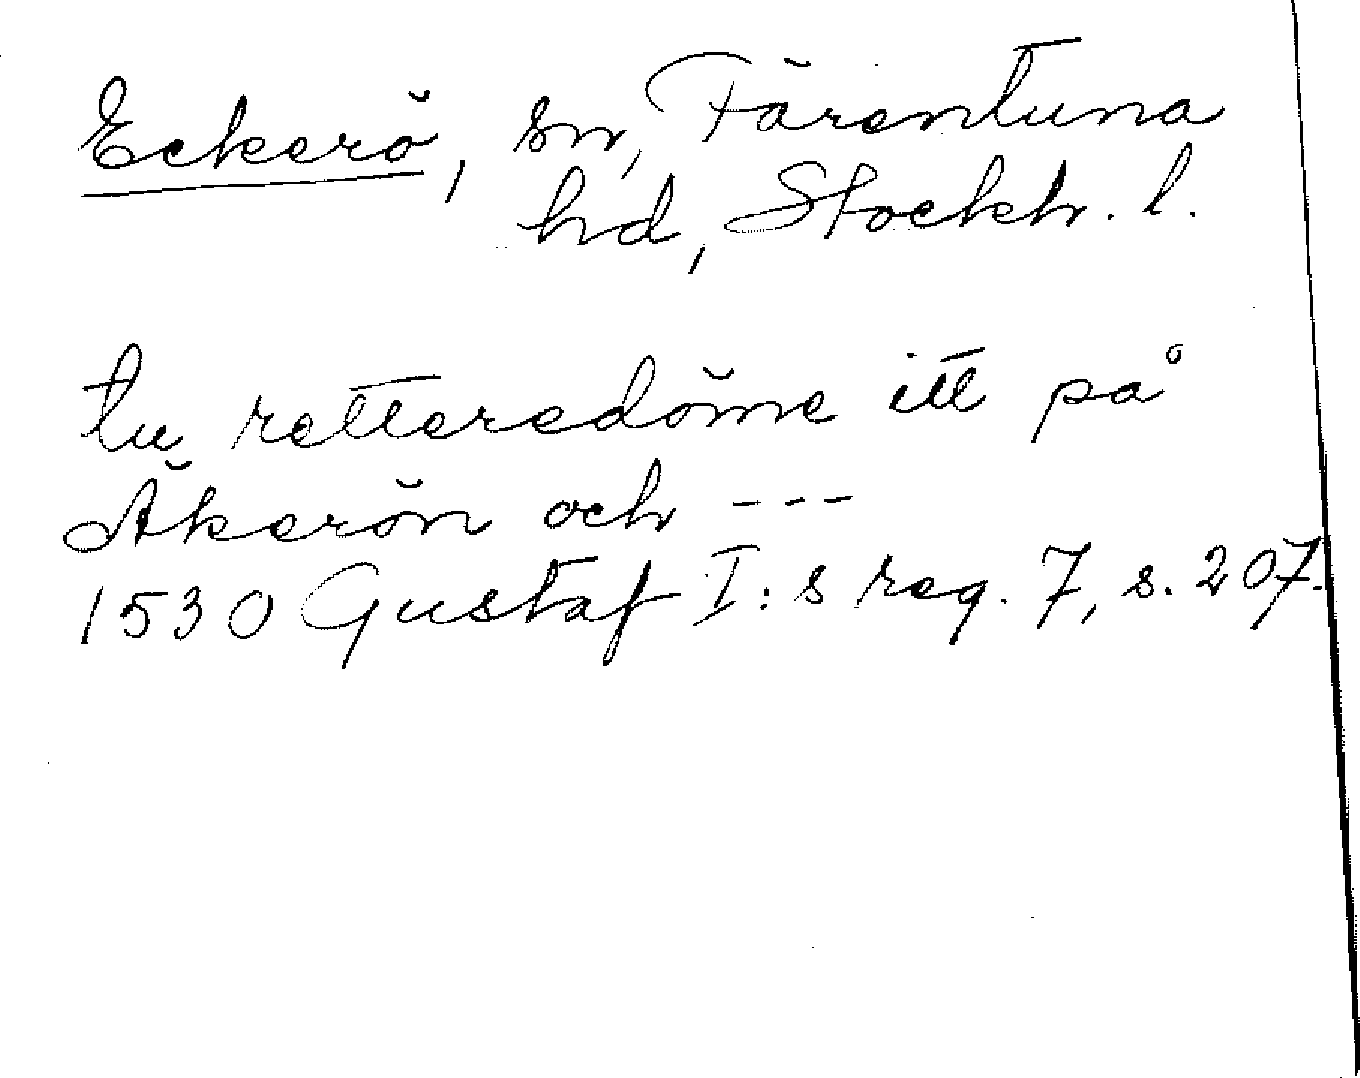 Eckerö, sn, Färentuna
hd, Stockh. l.
tu retteredöme itt på
Äkerön och ---
1530 Gustaf I:s reg. 7, s. 207.